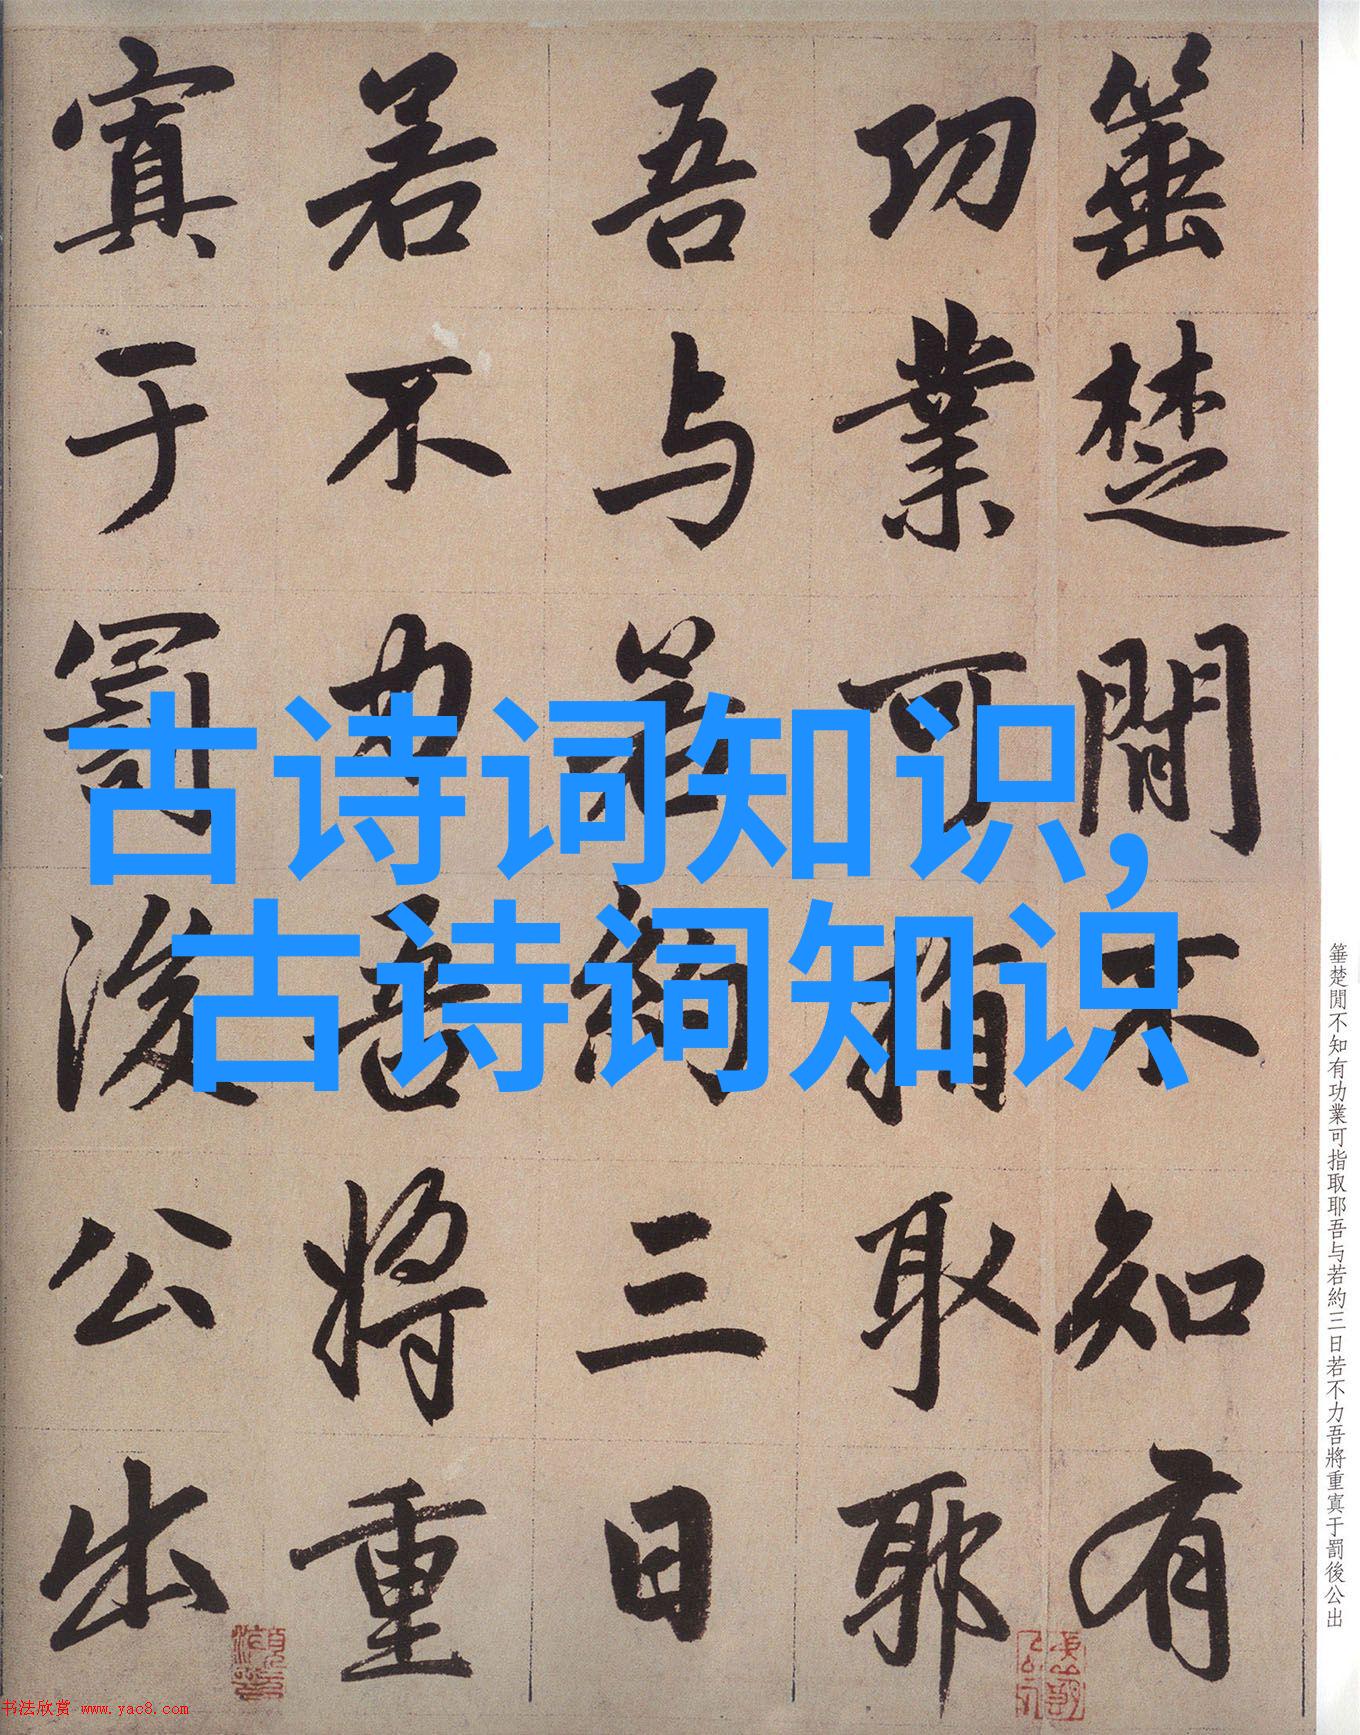 箠楚閒不知有
功業可指取耶
吾与若約三日
若不力吾將重
寘于罰後公出
古诗词知识,
古诗词知识
箠楚閒不知有功業可指取耶吾与若約三日若不力吾將重寘于罰後公出
书法欣赏 www.yac8.com